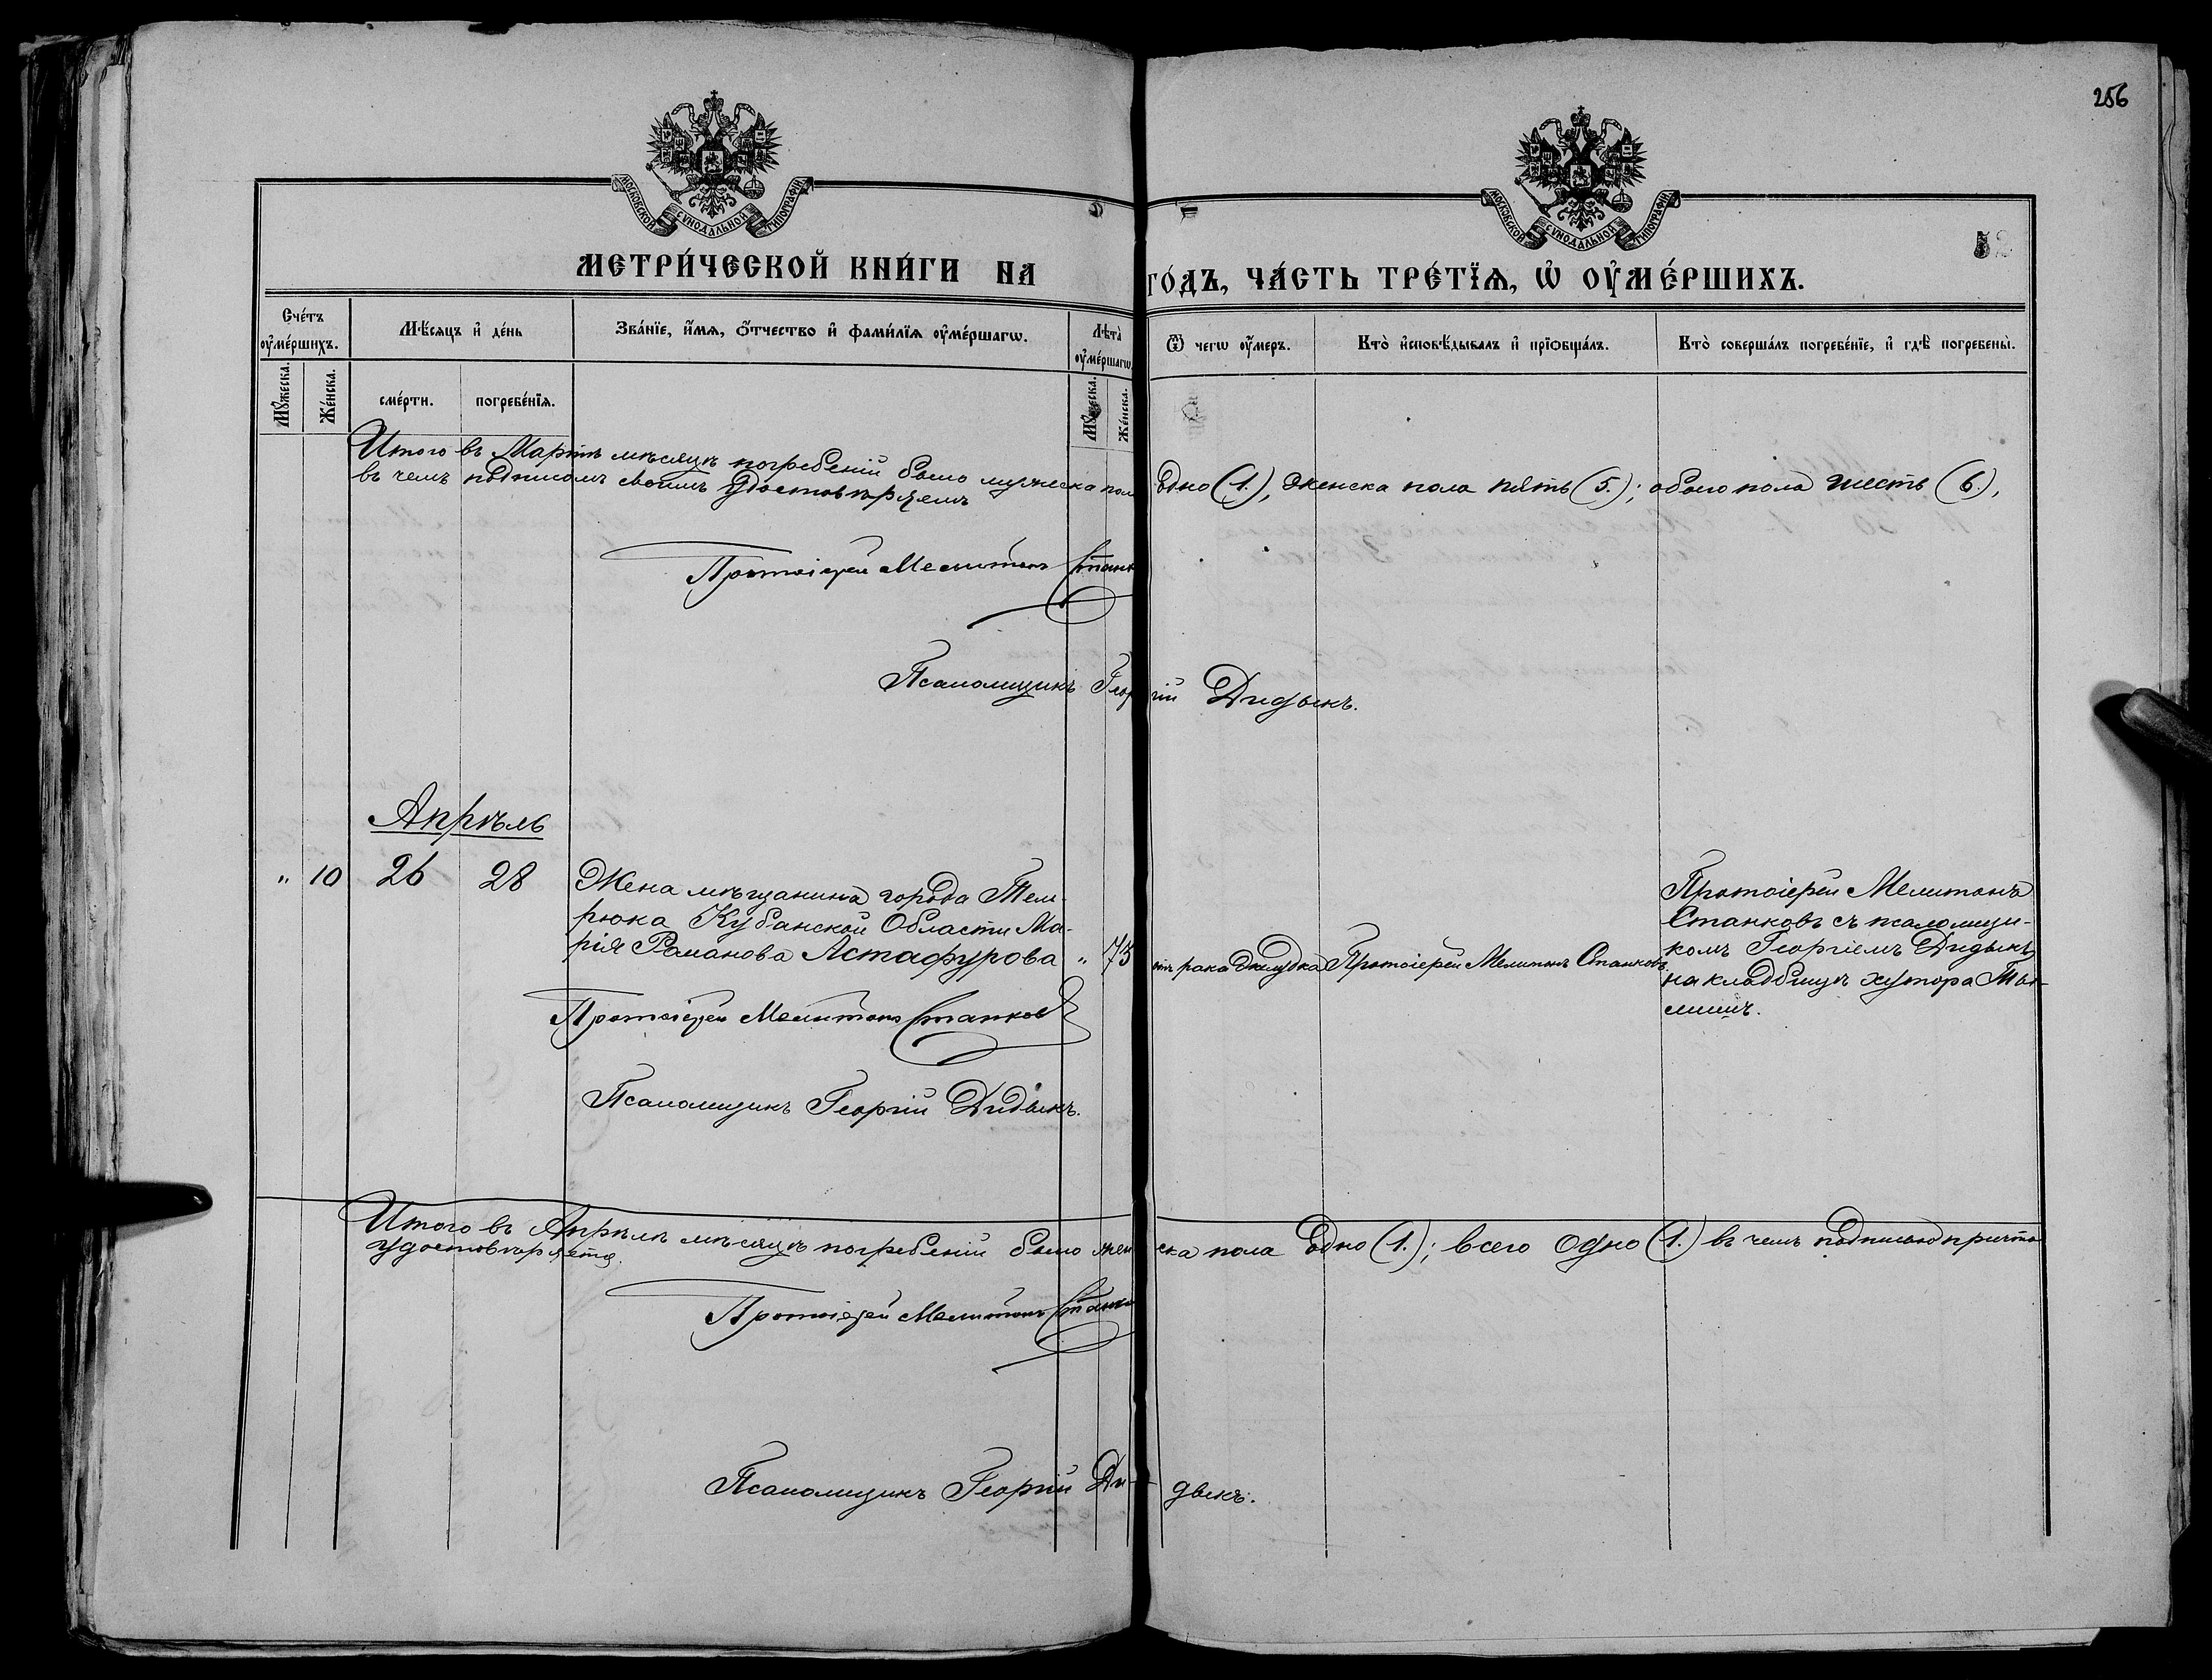 256
МОСКОВСКОЙ СѴНОДАЛЬНОЙ ТИПОГРАФІИ.
МОСКОВСКОЙ СѴНОДАЛЬНОЙ ТИПОГРАФІИ.
52
МЕТРИ́ЧЕСКОЙ КНИ́ГИ НА ГО́ДЪ, ЧА́СТЬ ТРЕ́ТЇѦ, Ѡ҆ ОУ҆МЕ́РШИХЪ.
Сче́тъ оу҆ме́ршихъ.
Мꙋ́жеска.
Же́нска.
Мѣ́сѧцъ и҆ де́нь
сме́рти.
погребе́нїѧ.
Зва́нїе, и҆́мѧ, ѻ҆́тчество и҆ фами́лїѧ оу҆ме́ршагѡ.
Лѣ̀та оу҆ме́ршагѡ.
Мꙋ́жеска.
Же́нска.
Ѿ чегѡ̀ оу҆́меръ.
Кто̀ и҆сповѣ́дывалъ и҆ прїѡбща́лъ.
Кто̀ соверша́лъ погребе́нїе, и҆ гдѣ̀ погребены̀.
Итого въ Мартѣ мѣсяцѣ погребеній было мужеска пола одно (1.), женска пола пять (5.); обоего пола шесть (6.),
въ чемъ подписомъ своимъ удостовѣряемъ
Протоіерей Мелитонъ Станк
Псаломщикъ Георгій Дидыкъ.
Апрѣль
" 10 26 28 Жена мѣщанина города Тем-
рюка Кубанской Области Ма-
рія Романова Астафурова " 73
отъ рака желудка
Протоіерей Мелитонъ Станковъ
Протоіерей Мелитонъ
Станковъ съ псаломщи-
комъ Георгіемъ Дидыкъ
на кладбищѣ хутора
Протоіерей Мелитонъ Станковъ
Псаломщикъ Георгій Дидыкъ.
Итого въ Апрѣлѣ мѣсяцѣ погребеній было женска пола одно (1.); всего одно (1.) въ чемъ подписью причта
удостовѣряется.
Протоіерей Мелитонъ Станко
Псаломщикъ Георгій Дидыкъ.